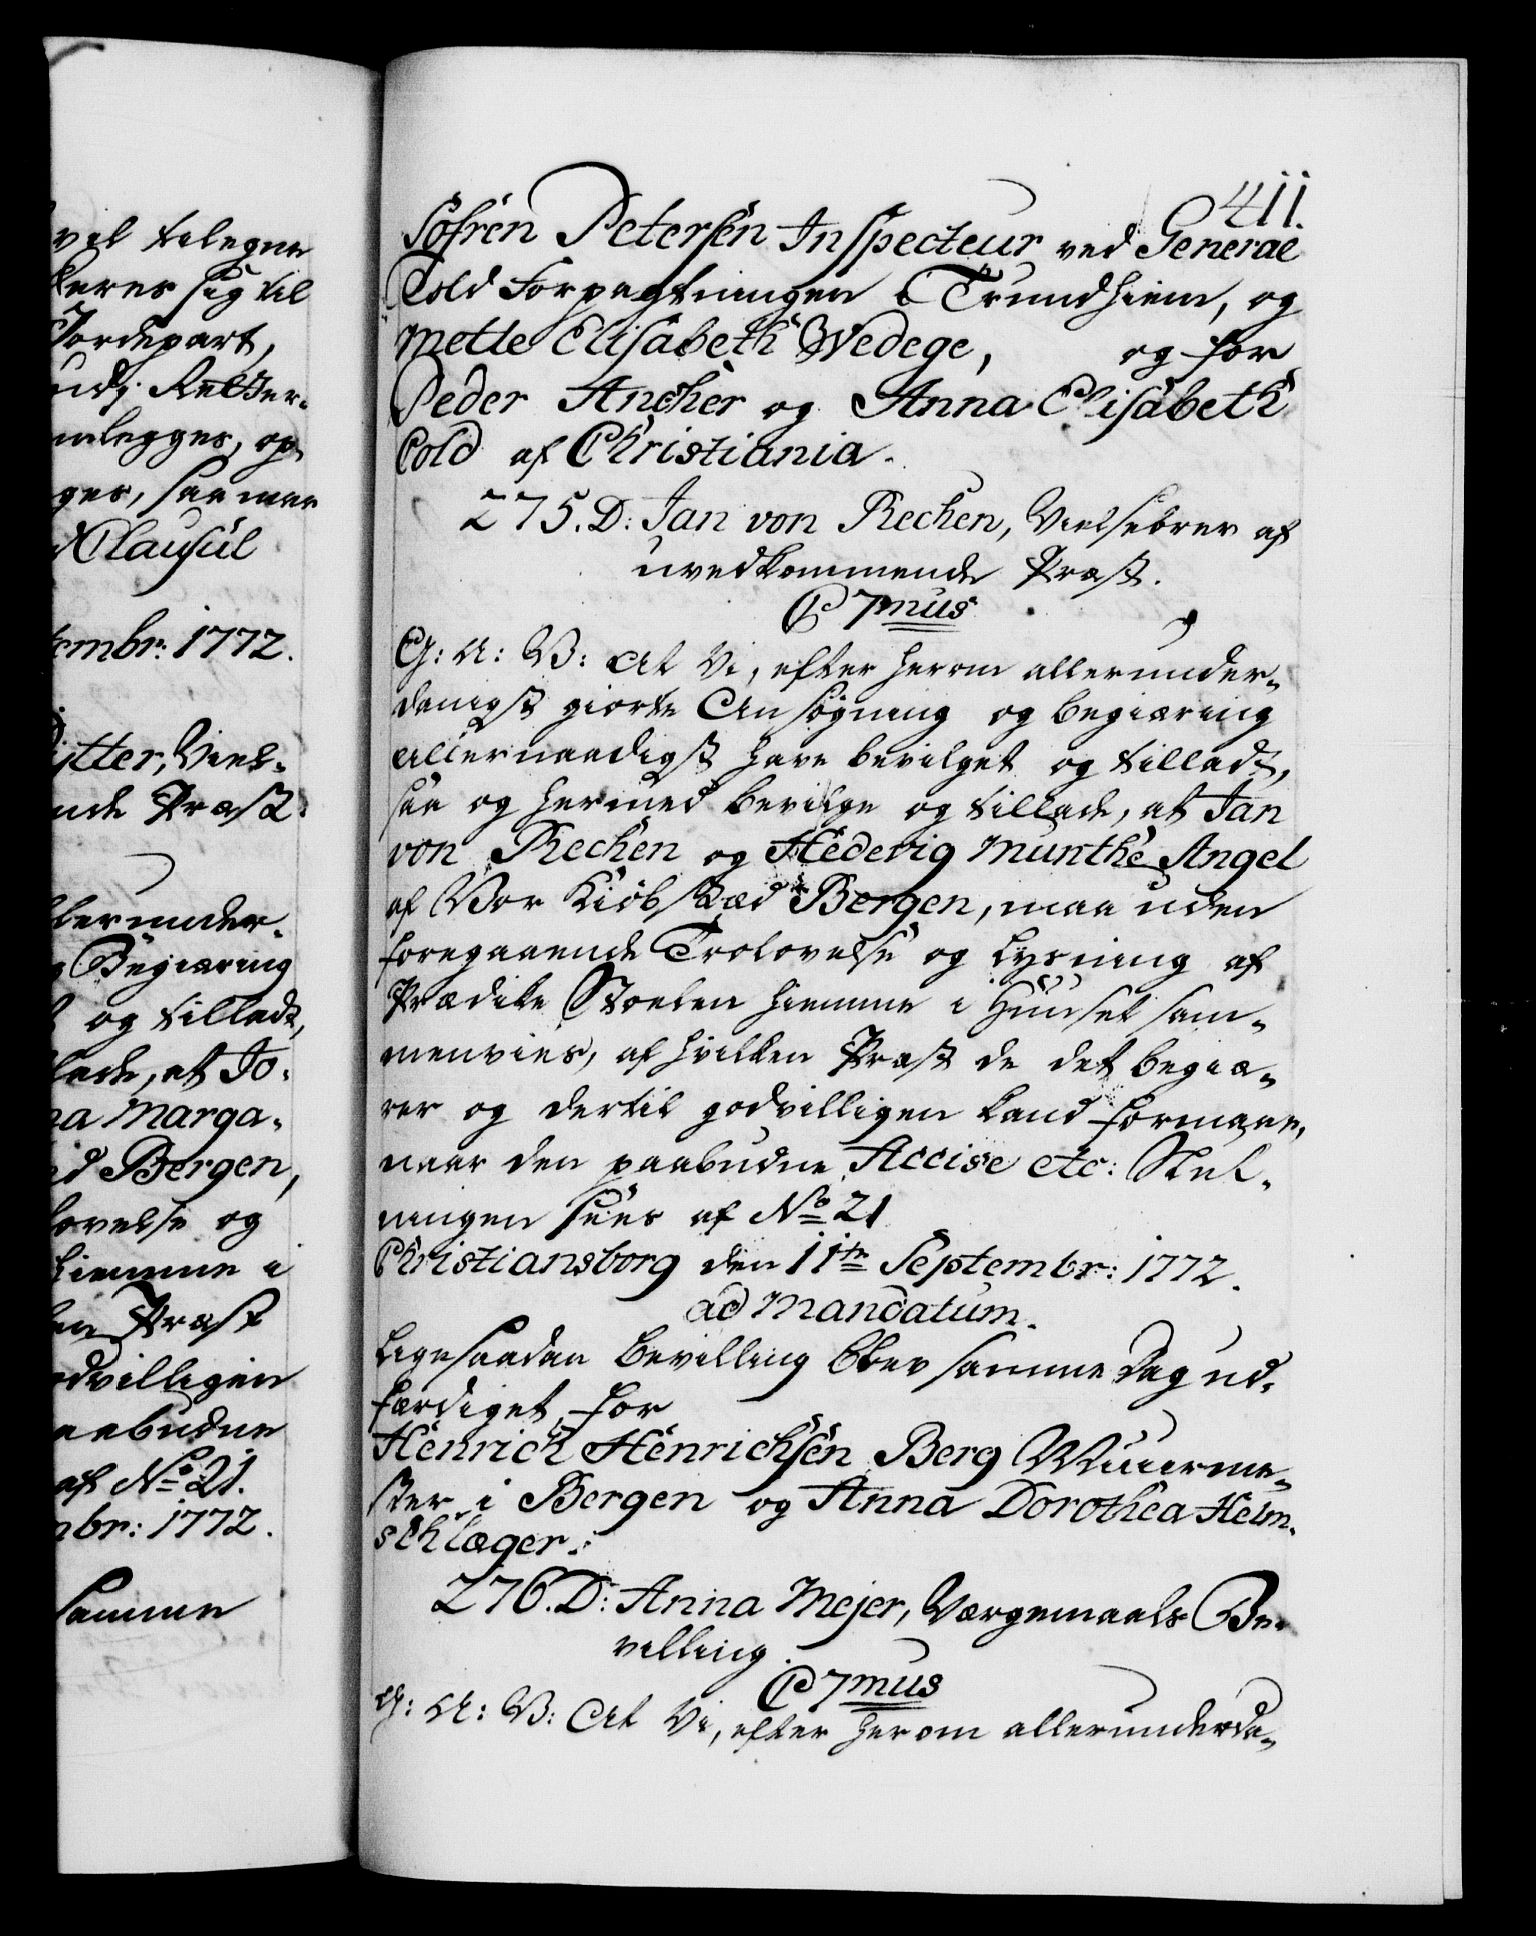 vel tilegne
deres sig til
Jordepart,
udj. Retter-
melegges, og
ges, saa mar
d Clausül
tembr: 1772.
ytter, Viels-
nde Præst.
llerunder-
g Begiæring
og tilladt,
lade, at Jo-
na Marga-
ed Bergen,
lovelse og
hiemme i
en Præst
odvilligen
aabudne
af No. 21.
mbr: 1772.
samme
411.
Söfren Petersen Inspecteur ved General
Told Forpagtningen i Trundhiem, og
Mette Elisabeth Wedege, og for
Peder Ancher og Anna Elisabeth
Cold af Christiania.
275. D: Jan von Rechen, Vielsebrev af
uvedkommende Præst.
C 7mus
G: A: V: At Vi, efter herom allerunder-
danigst giorte Ansøgning og begiæring
allernaadigst have bevilget og tilladt,
saa og hermed bevilge og tillade, at Jan
von Rechen og Hedevig Munthe Angel
af Vor Kiöbstæd Bergen, maa uden
foregaaende Trolovelse og Lysning af
Prædike Stoelen hiemme i Huuset sam-
menvies, af hvilken Præst de det begiæ-
rer og dertil godvilligen kand formaae,
naar den paabudne Accise etc: Slut-
ningen sees af No. 21
Christiansborg den 11te Septembr: 1772.
ad Mandatum.
Ligesaadan Bevilling blev samme Dag ud-
færdiget for
Henrich Henrichsen Berg Muurme-
ster i Bergen og Anna Dorothea Helm-
schlæger.
276. D: Anna Mejer, Værgemaals Be-
villing.
C 7mus
G: A: V: At Vi, efter herom allerunderda-